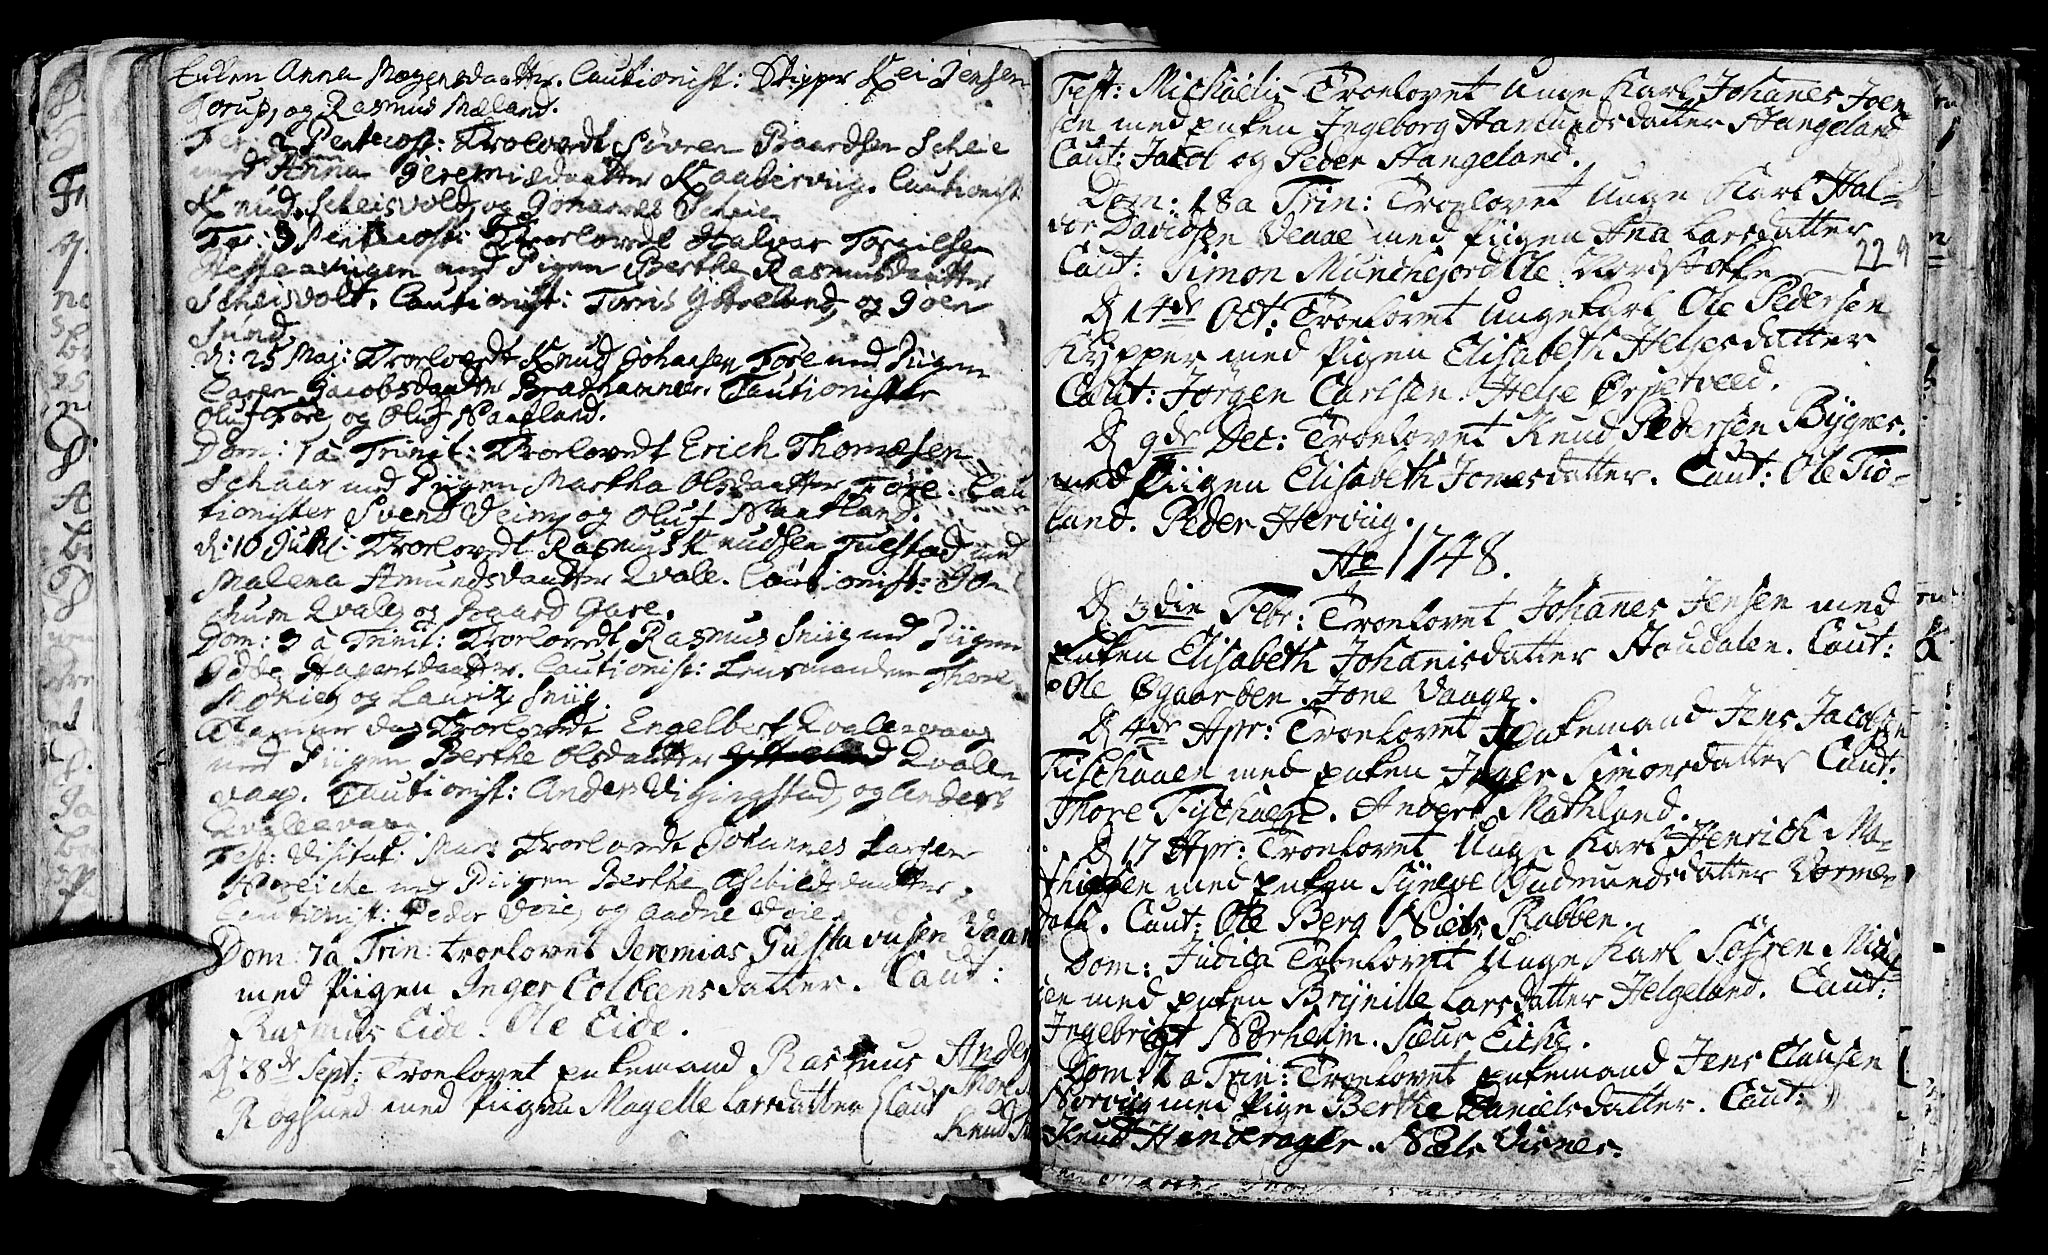 Enken Anna Mogensdaatter. Cautionist: Skipper Kei Jensen
Torup, og Rasmus Meland.
Fer: 2 Pentecost: Trolovedt Søvren Baardsen Scheie
med Anna Jeremisdaatter Kaaberviig. Cautionist:
Knud Scheisvold, og Johannes Scheie
Fer: 3 Pentecost: Trolovedt Halvar Torgilsen
med Pigen Berthe Rasmusdaatter
Scheisvold. Cautionist: Torris Gitteland, og Joen
Sund
d: 25 Maj: Trolovedt Knud Johansen Føre med Piigen
Caren Jacobsdaatter Bratthammer. Cautionister
Oluf Føre, og Oluf Naafland.
Dom: 1 a Trinit: Trolovedt Erich Thomæsen
Schaar med Piigen Martha Olsdaatter Føre. Cau
tionister Svend Veim, og Oluf Naafland.
d: 10 Junii: Trolovedt Rasmus Knudsen Tuestad med
Malena Amundsdaatter Qvale. Cautionist: Gun
Qvale, og Baard Gare.
Dom: 3 a Trinit: Trolovedt Rasmus Sniig med Piigen
Hagensdaatter. Cautionist: Lensmanden Thore
og Lauriz Sniig.
dag Trolovedt Engelbert Qvalevaag
med Piigen Berthe Olsdaatter Qvale
vaag. Cautionist: Anders Vigingstad, og Anders
Qvalevaag
Fest: Visitat: Mar: Trolovedt Johannes Larsen
Noreiche med Piigen Berthe Asbielsdaatter.
Cautionist: Peder Voie, og Aadne Voie
Dom: 7 a Trin: troelovet Jeremias Gustavusen Vaar
med Piigen Inger Colbeensdatter. Caut:
Rasmus Eide. Ole Eide.
D 28de Sept: Troelovet Enkemand Rasmus Anders
Røgsund med Piigen Magelle Larsdatter Caut Thor
Knud
Fest: Michaelis Troelovet Unge Karl Johanes Joen
sen med Enken Ingeborg Hamundsdatter Hangeland
Caut: Jacob og Peder Hangeland.
Dom: 18 a Trin: Troelovet Unge Karl Hal=
vor Davidsen Veaae med Piigen Ana Larsdatter
Caut: Simon Munckejord Ole Nordstokke 229
D 14de Oct: Troelovet Unge Karl Ole Pedersen
Kypper med Pigen Elisabeth Helgesdatter
Caut: Jørgen Carlsen. Helge Ørpetveed.
D 9de Dec: Troelovet Knud Pedersen Bygnes.
med Piigen Elisabeth Jonesdatter. Caut: Ole Tio-
land. Peder Herviig.
Ao 1748.
D 3die Febr: Troelovet Johanes Jensen med
Enken Elisabeth Johanisdatter Haudalen. Caut:
Ole Øgaarden. Jone Vaage.
D 4de Apr: Troelovet Enkemand Jens Jacobsen
Fischaaen med Enken Inger Simonsdatter Caut:
Thore Fischaaen. Anders Mathland.
D 17 Apr: Troelovet Unge Karl Henrich Ma-
thiæsen med Enken Syneve Gudmundsdatter Vorme-
dahl. Caut: Ole Berg Niels Rabben.
Dom: Judica Troelovet Unge Karl Søfren
sen med Enken Brynille Larsdatter Helgeland. Caut:
Ingebrigt Norheim. Siur Eiche.
Dom: 12 a Trin: Troelovet Enkemand Jens Clausen
Norviig med Pige Berthe Danielsdatter. Caut:
Knud Handerager. Niels Visnes.